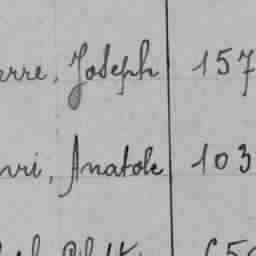 erre, Joseph 157
nri, Anatole 103